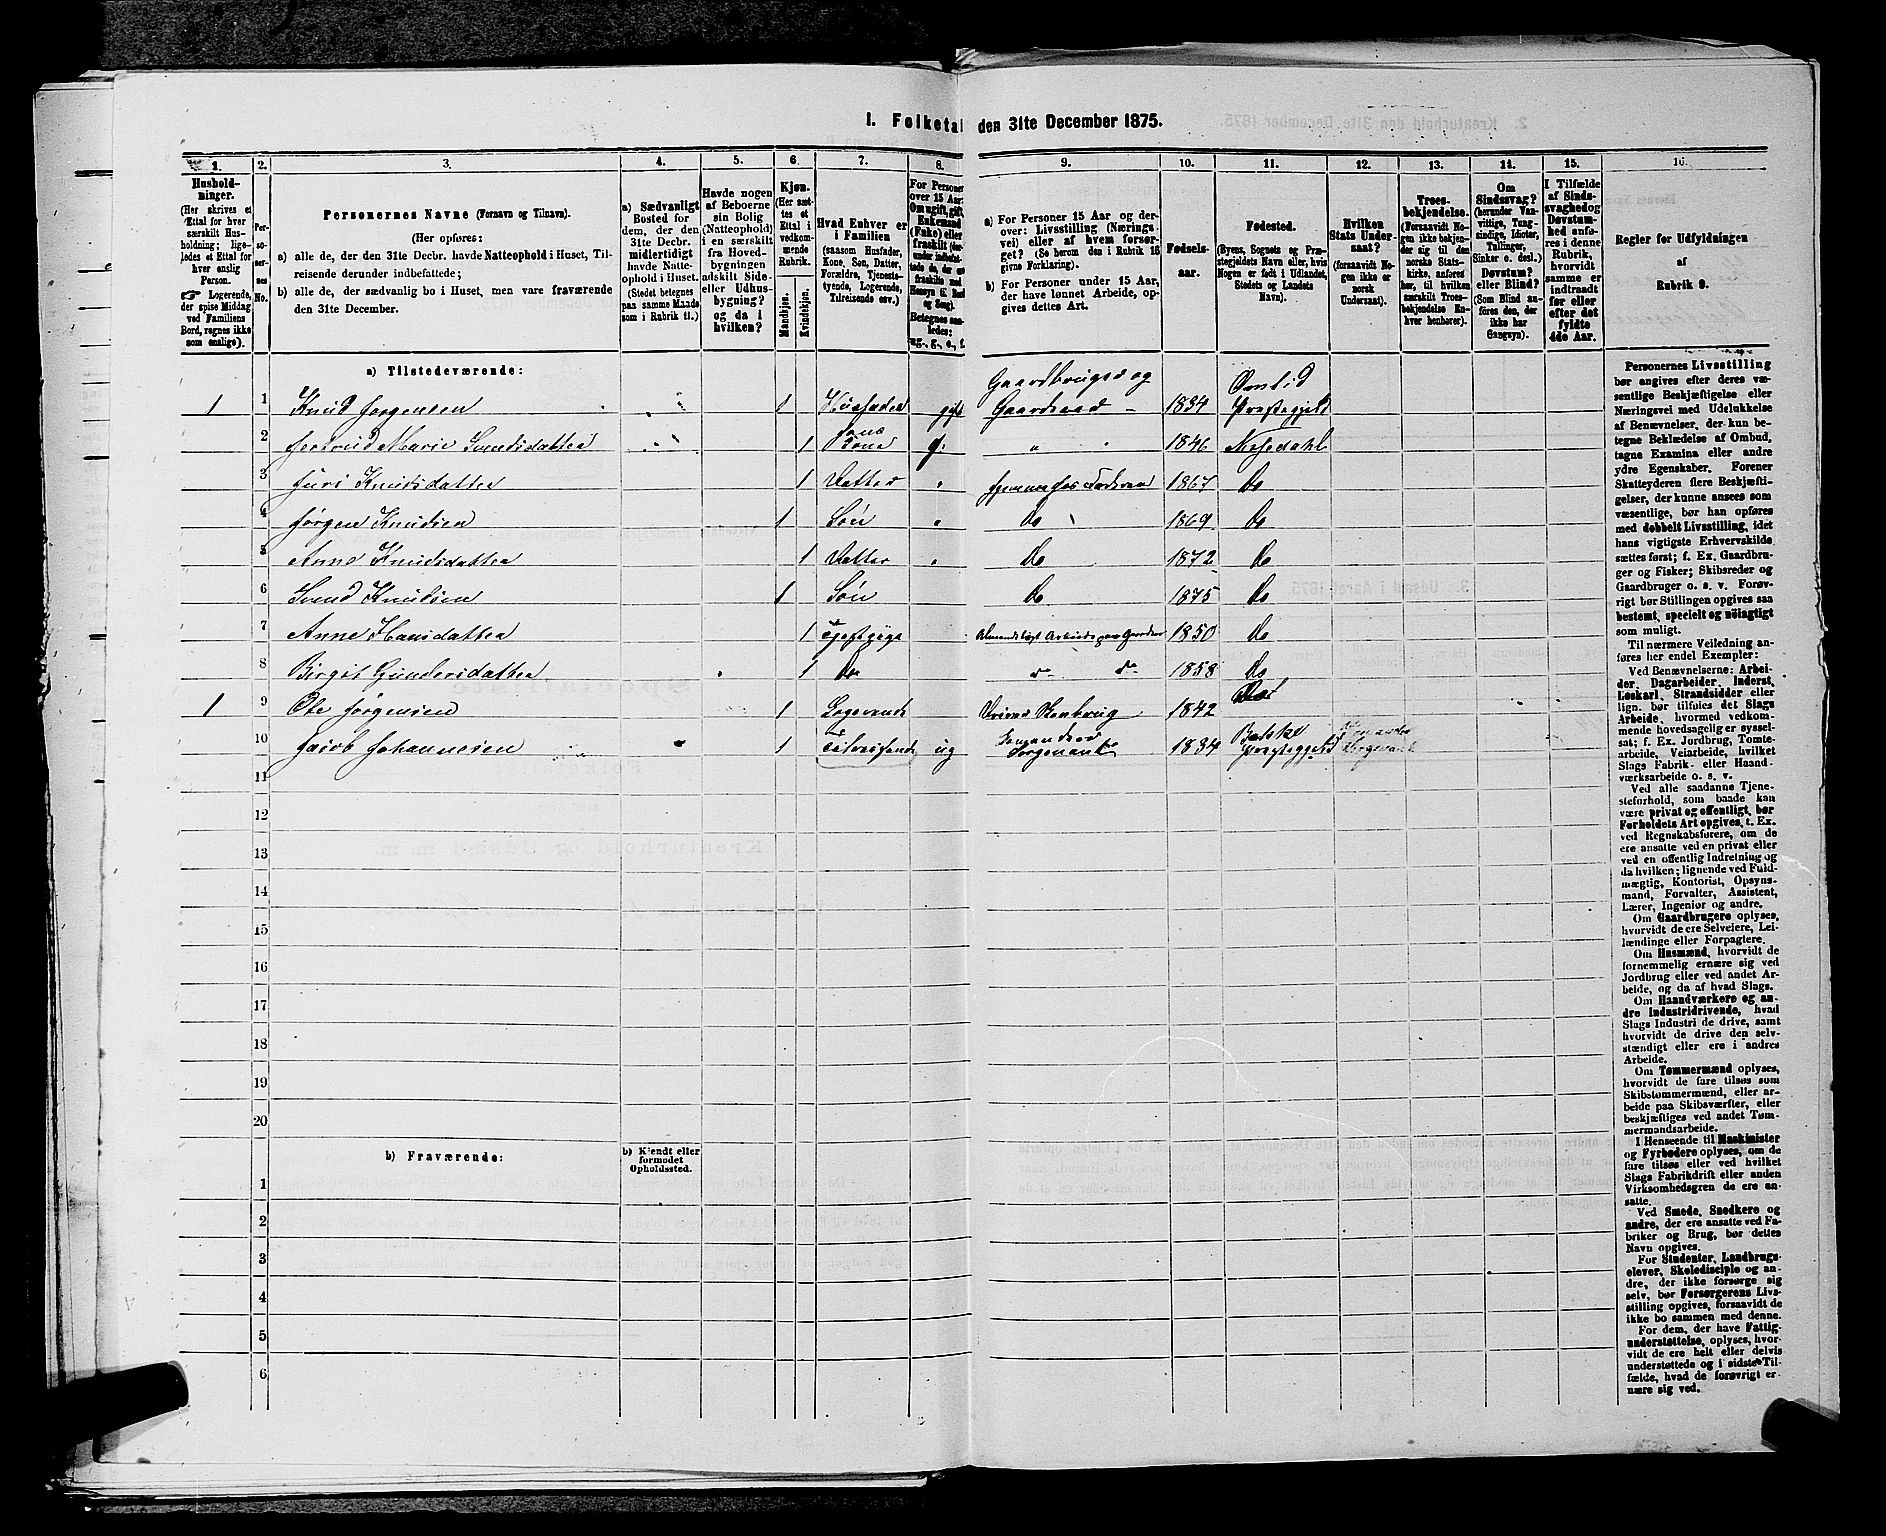 1. Folketal den 31te December 1875.
1. 2. 3. 4. 5. 6. 7. 8. 9. 10. 11. 12. 13. 14. 15. 16.
Husholdninger.
(Her skrives et Ettal for hver særskilt Husholdning; ligeledes et Ettal for hver enslig Person.
☞ Logerende, der spise Middag ved Familiens Bord, regnes ikke som enslige).
Personernes No.
Personernes Navne (Fornavn og Tilnavn).
(Her opføres:
a) alle de, der den 31te Decbr. havde Natteophold i Huset, Tilreisende derunder indbefattede;
b) alle de, der sædvanlig bo i Huset, men vare fraværende den 31te December.
a) Sædvanligt Bosted for dem, der den 31te Decbr. midlertidigt havde Natteophold i Huset.
(Stedet betegnes paa samme Maade som i Rubrik 11.)
Havde nogen af Beboerne sin Bolig (Natteophold) i en særskilt fra Hovedbygningen adskilt Side- eller Udhusbygning? og da i hvilken?
Kjøn.
(Her sættes et Ettal i vedkommende Rubrik.
Mandkjøn.
Kvindekjøn.
Hvad Enhver er i Familien
(saasom Husfader, Kone, Søn, Datter, Forældre, Tjenestetyende, Logerende, Tilreisende osv.)
For Personer over 15 Aar: Om ugift, gift, Enkemand (Enke) eller fraskilt
Betegnes saaledes: ug., g., e., f.
a) For Personer 15 Aar og derover: Livsstilling (Næringsvei) eller af hvem forsørget? (Se herom den i Rubrik 16 givne Forklaring).
b) For Personer under 15 Aar, der have lønnet Arbeide, opgives dettes Art.
Fødselsaar.
Fødested.
(Byens, Sognets og Præstegjeldets Navn eller, hvis Nogen er født i Udlandet, Stedets og Landets Navn).
Hvilken Stats Undersaat?
(forsaavidt Nogen ikke er norsk Undersaat).
Troesbekjendelse.
(Forsaavidt Nogen ikke bekjender sig til den norske Statskirke, anføres her, til hvilken særskilt Troesbekjendelse Enhver henhører).
Om Sindssvag?
(herunder Vanvittige, Tungsindige, Idioter, Tullinger, Sinker o. desl.)
Døvstum? eller Blind?
(Som Blind anføres den, der ikke har Gangsyn).
I Tilfælde af Sindssvaghed og Døvstumhed anføres i denne Rubrik, hvorvidt samme er indtraadt før eller efter det fyldte 4de Aar.
Regler for Udfyldningen af Rubrik 9.
a) Tilstedeværende:
1 1 Knud Jørgensen 1 Husfader gift Gaardbruger og 1834 Præstegjeld
2 1 Kone g. 1846 Nissedahl
3 Juri Knudsdatter 1 Datter 1867 Do
4 Jørgen Knudsen 1 Søn Do 1869 Do
5 Anne Knudsdatter 1 Datter Do 1872 Do
6 Svend Knudsen 1 Søn Do 1875 Do
7 Anne Hansdatter 1 1850 Do
8 Birgit Gundersdatter 1 Do 1858 Do
1 9 Ole Jørgensen 1 Logerende 1842 Do
10 Jacob Johannesen 1 Tilreisende ug 1834 Præstegjeld
11
12
13
14
15
16
17
18
19
20
b) Fraværende:
b) Kjendt eller formodet Opholdssted.
1
2
3
4
5
6
Personernes Livsstilling bør angives efter deres væsentlige Beskjæftigelse eller Næringsvei med Udelukkelse af Benævnelser, der kun betegne Beklædelse af Ombud, tagne Examina eller andre ydre Egenskaber. Forener Skatteyderen flere Beskjæftigelser, der kunne ansees som væsentlige, bør han opføres med dobbelt Livsstilling, idet hans vigtigste Erhvervskilde sættes først; f. Ex. Gaardbruger og Fisker; Skibsreder og Gaardbruger o. s. v. Forøvrigt bør Stillingen opgives saa bestemt, specielt og nöiagtigt som muligt.
Til nærmere Veiledning anføres her endel Exempler:
Ved Benævnelserne: Arbeider, Dagarbeider, Inderst, Løskarl, Strandsidder eller lign. bør tilføies det Slags Arbeide, hvormed vedkommende hovedsagelig er sysselsat; f. Ex. Jordbrug, Tomtearbeide, Veiarbeide, hvilket Slags Fabrik- eller Haandværksarbeide o. s. v.
Ved alle saadanne Tjenesteforhold, som baade kan være privat og offentligt, bør Forholdets Art opgives, t. Ex. ved Regnskabsførere, om de ere ansatte ved en privat eller ved en offentlig Indretning og da hvilken; lignende ved Fuldmægtig, Kontorist, Opsynsmand, Forvalter, Assistent, Lærer, Ingeniør og andre.
Om Gaardbrugere oplyses, hvorvidt de ere Selveiere, Leilændinge eller Forpagtere.
Om Husmænd, hvorvidt de fornemmelig ernære sig ved Jordbrug eller ved andet Arbeide, og da af hvad Slags.
Om Haandværkere og andre Industridrivende, hvad Slags Industri de drive, samt hvorvidt de drive den selvstændigt eller ere i andres Arbeide.
Om Tømmermænd oplyses, hvorvidt de fare tilsøs som Skibstømmermænd, eller arbeide paa Skibsværfter, eller beskjæftiges ved andet Tømmermandsarbeide.
I Henseende til Maskinister og Fyrbødere oplyses, om de fare tilsøs eller ved hvilket Slags Fabrikdrift eller anden Virksomhedsgren de ere ansatte.
Ved Smede, Snedkere og andre, der ere ansatte ved Fabriker og Brug, bør dettes Navn opgives.
For Studenter, Landbrugselever, Skoledisciple og andre, der ikke forsørge sig selv, bør Forsørgerens Livsstilling opgives, forsaavidt de ikke bo sammen med denne.
For dem, der have Fattigunderstøttelse, oplyses, hvorvidt de ere helt eller delvis understøttede og i sidste Tilfælde, hvad de forøvrigt ernære sig ved.